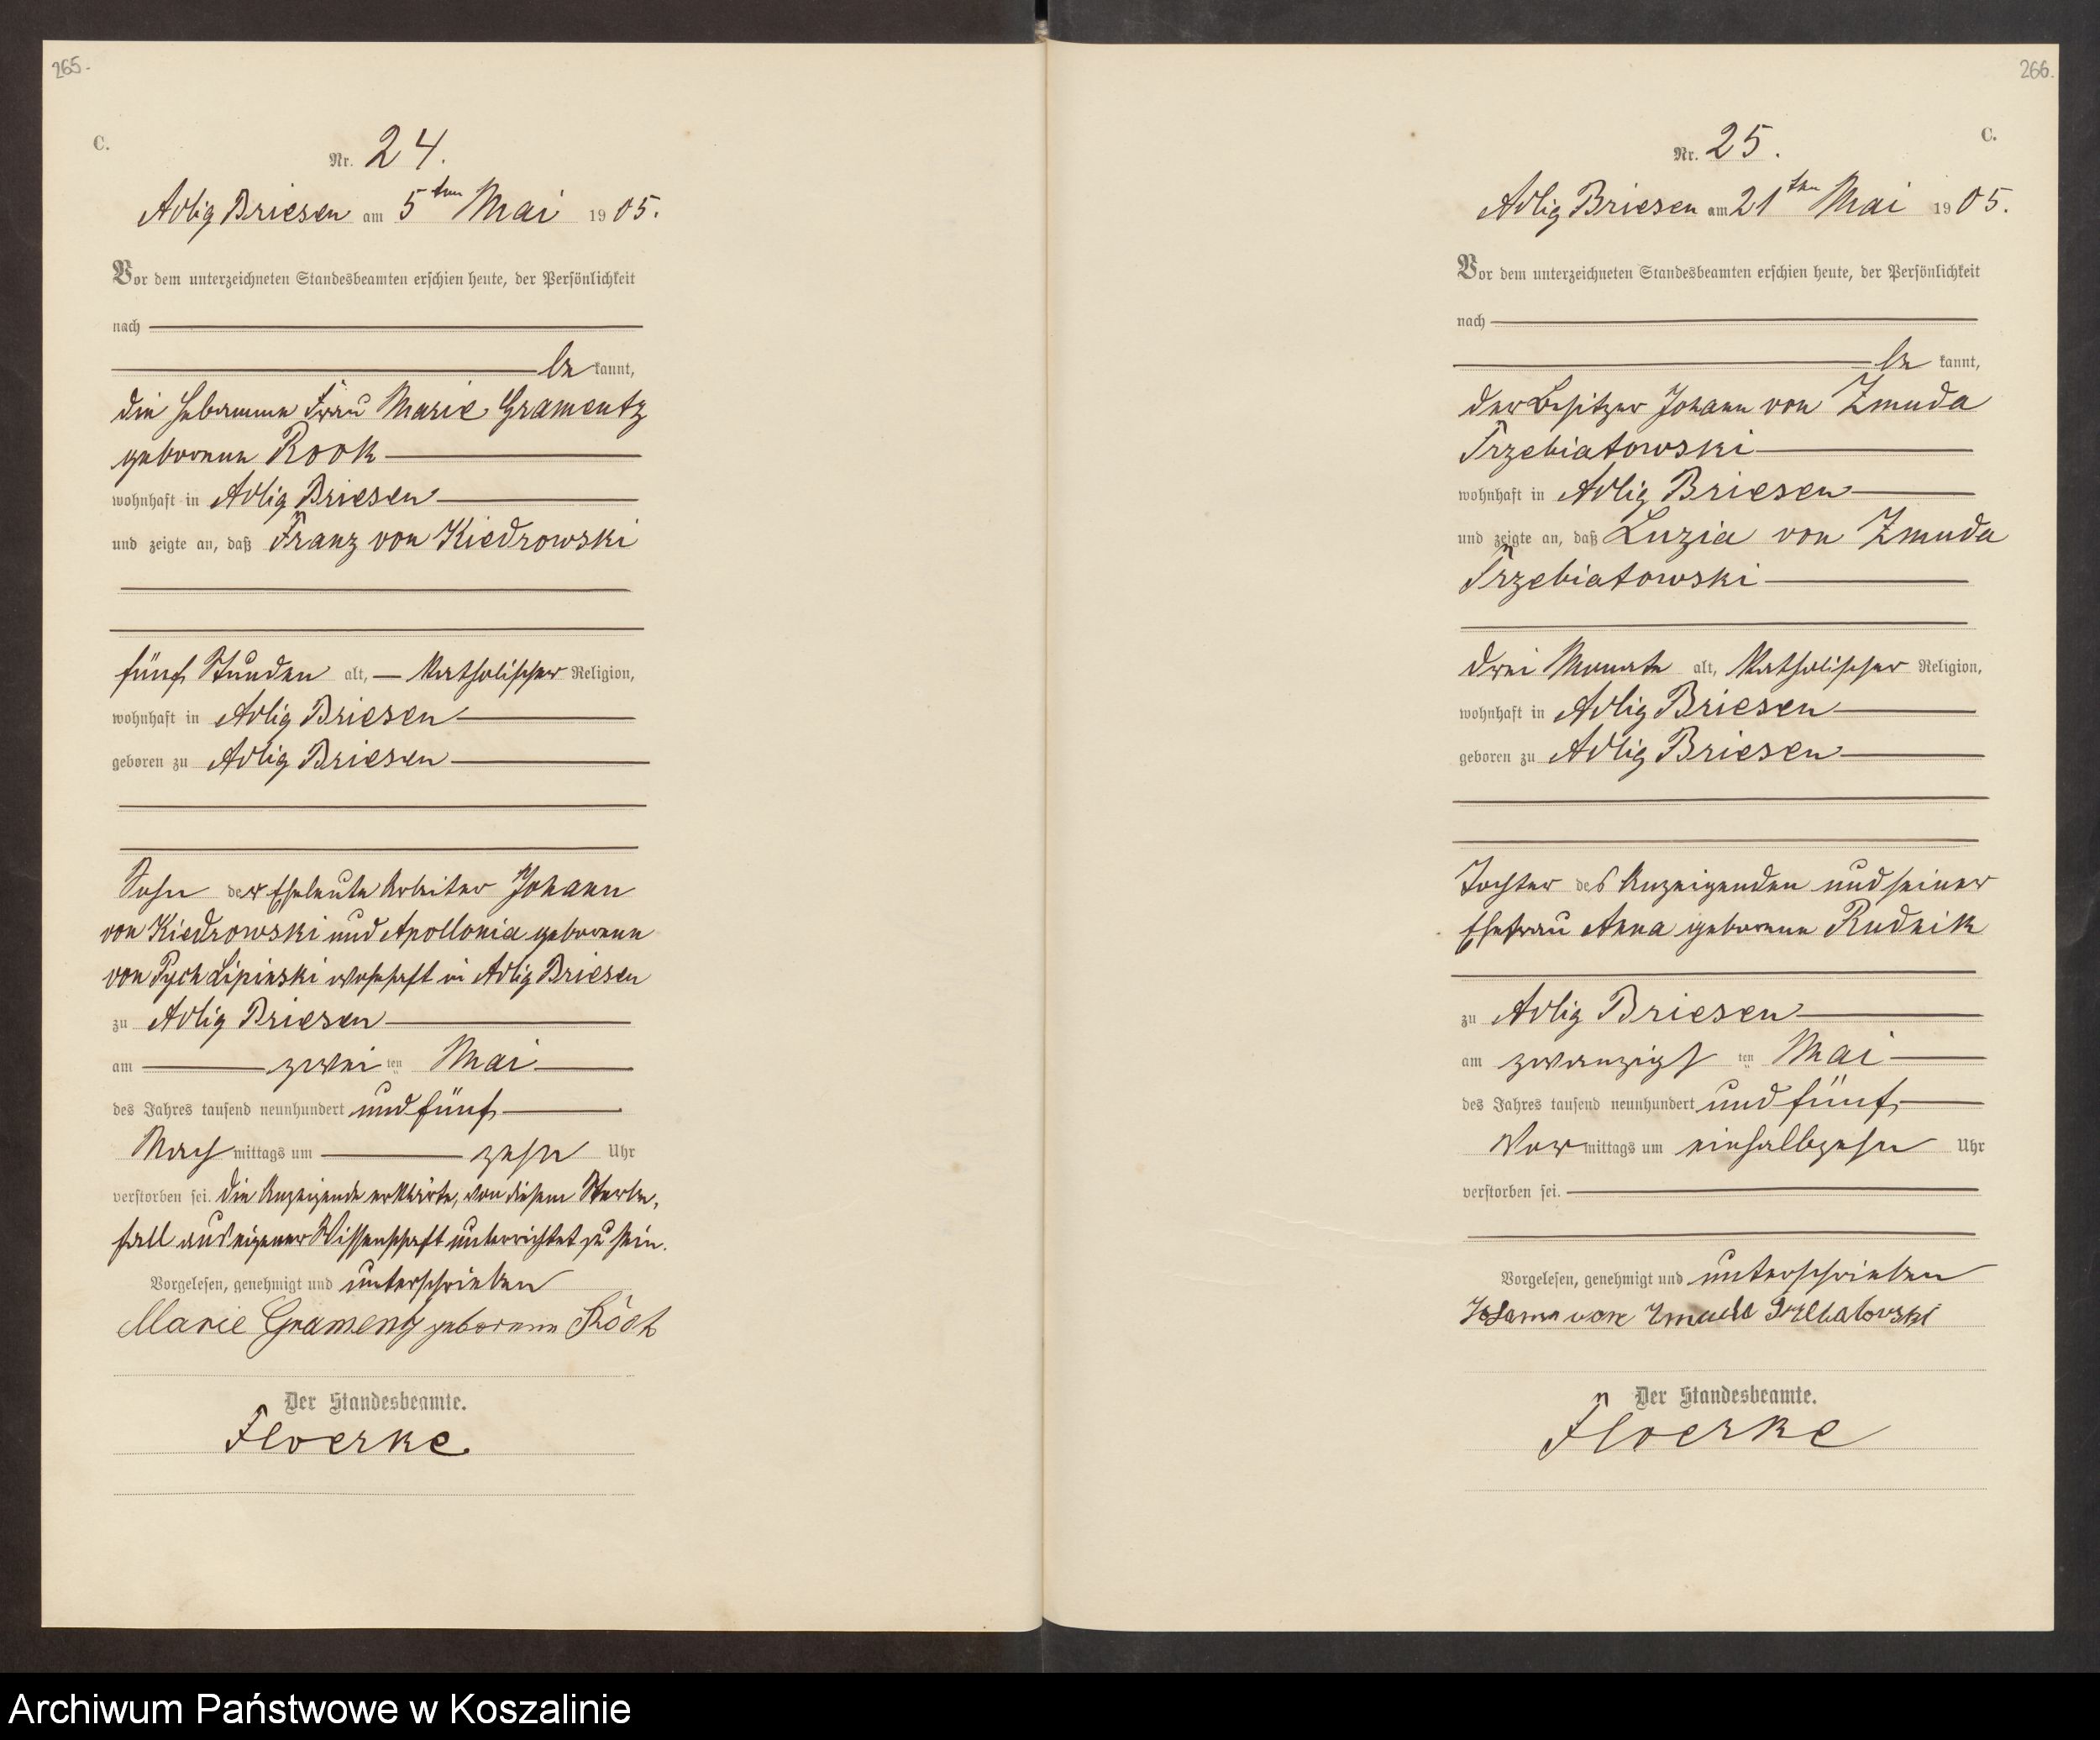 265.
C.
Nr. 24.
Adlig Briesen am 5ten Mai 1905.
Vor dem unterzeichneten Standesbeamten erschien heute, der Persönlichkeit
nach
be kannt,
die Hebamme Frau Marie Gramentz
geborene Rook
wohnhaft in Adlig Briesen
und zeigte an, daß Franz von Kiedrowski
fünf Stunden alt, katholischer Religion,
wohnhaft in Adlig Briesen
geboren zu Adlig Briesen
Sohn der Eheleute Arbeiter Johann
von Kiedrowski und Apollonia geborene
von Pych Lipinski wohnhaft in Adlig Briesen
zu Adlig Briesen
am zwei ten Mai
des Jahres tausend neunhundert und fünf
Nach mittags um zehn Uhr
verstorben sei. Die Anzeigende erklärte, von diesem Sterbe-
fall aus eigener Wissenschaft unterrichtet zu sein.
Vorgelesen, genehmigt und unterschrieben
Marie Gramentz geborene
Der Standesbeamte.
Floerke
266.
C.
Nr. 25.
Adlig Briesen am 21ten Mai 1905.
Vor dem unterzeichneten Standesbeamten erschien heute, der Persönlichkeit
nach
be kannt,
der Besitzer Johann von Zmuda
Trzebiatowski
wohnhaft in Adlig Briesen
und zeigte an, daß Luzia von Zmuda
Trzebiatowski
drei Monate alt, katholischer Religion,
wohnhaft in Adlig Briesen
geboren zu Adlig Briesen
Tochter des Anzeigenden und seiner
Ehefrau Anna geborene Rudnik
zu Adlig Briesen
am zwanzigs ten Mai
des Jahres tausend neunhundert und fünf
Vor mittags um einhalbzehn Uhr
verstorben sei.
Vorgelesen, genehmigt und unterschrieben
Johann von Zmuda
Der Standesbeamte.
Floerke
Archiwum Państwowe w Koszalinie